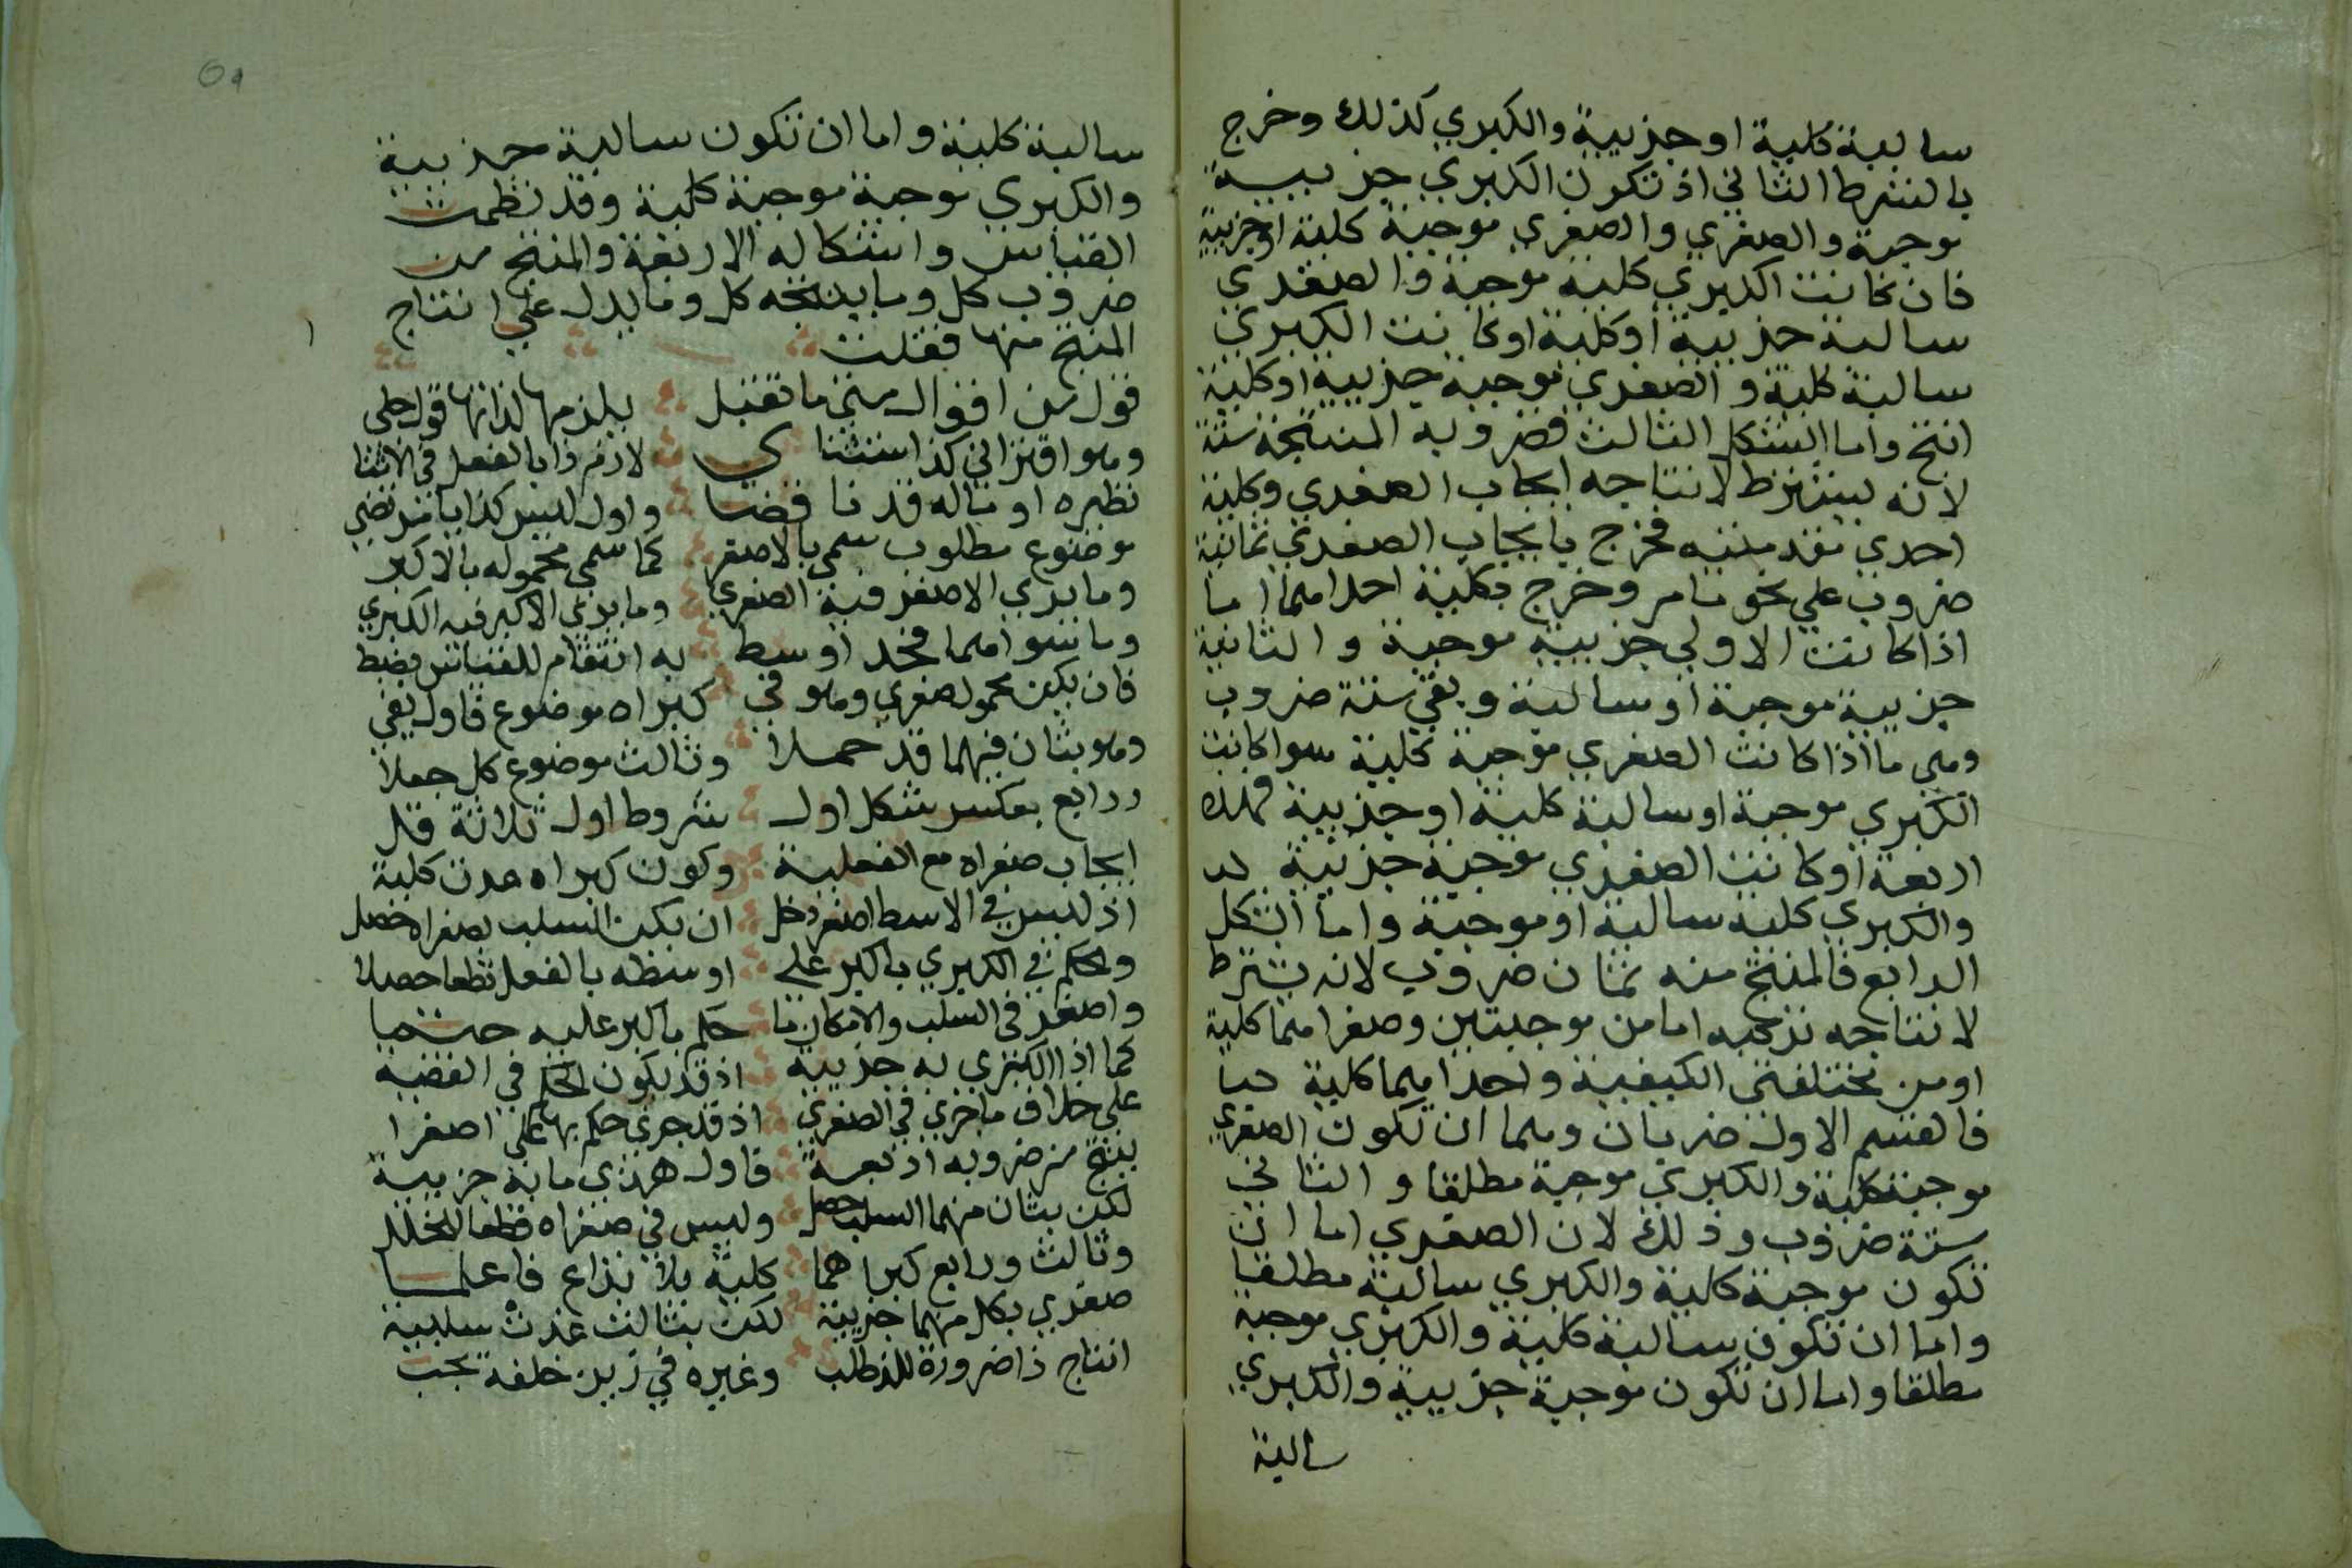 سالبة كلية او جزيية والكبري كذلك وخرج
بالشرط الثاني اذ تكون الكبري جزيية
موجبة والصغري والصغري موجبة كلية او جزيية
فان كانت الكبري كلية موجبة والصغري
سالبة جزيية او كلية او كانت الكبري
سالبة كلية والصغري موجبة جزيية او كلية
انتج واما الشكل الثالث فضروبه المنتجة ستة
لانه يشترط لانتاجه ايجاب الصغري وكلية
احدي مقدمتيه فخرج بايجاب الصغري ثمانية
ضروب علي نحو ما مر وخرج بكلية احداهما ما
اذا كانت الاولي جزيية موجبة والثانية
جزيية موجبة او سالبة وبقي ستة ضروب
وهي ما اذا كانت الصغري موجبة كلية سوا كانت
الكبري موجبة او سالبة كلية او جزيية فهذه
اربعة او كانت الصغري موجبة جزيية
والكبري كلية سالبة او موجبة واما الشكل
الرابع فالمنتج منه ثمان ضروب لانه يشترط
لانتاجه تركبه اما من موجبتين وصغراهما كلية
او من مختلفتي الكيفية واحداهما كلية
فالقسم الاول ضربان وهما ان تكون الصغري
موجبة كلية والكبري موجبة مطلقا والثاني
ستة ضروب وذلك لان الصغري اما ان
تكون موجبة كلية والكبري سالبة مطلقا
واما ان تكون سالبة كلية والكبري موجبة
مطلقا واما ان تكون موجبة جزيية والكبري
سالبة
سالبة كلية واما ان تكون سالبة جزيية
والكبري موجبة موجبة كلية وقد نظمت
القياس واشكاله الاربعة والمنتج من
ضروب كل وما ينتجه كل وما يدل علي انتاج
المنتج منها فقلت
قول من اقوال متي ما تقبل يلزمها لذاتها قول جلي
وهو اقتراني كذا استثناي لازم ذا بالفعل في الاثنا
نظيره او ماله قد ناقضا واول ليس كذا يا مرتضي
موضوع مطلوب سمي بالاصغر كما سمي محموله بالاكبر
وما بدي الاصغر فيه الصغري وما بدي الاكبر فيه الكبري
وما سواهما فحد اوسط به انتظام للقياس يضبط
فان يكن محمول صغري وهو في كبراه موضوع فاول يفي
وهو بثان فيهما قد حملا وثالث موضوع كل جعلا
ورابع بعكس شكل اول شروط اول ثلاثة قل
ايجاب صغراه مع الفعلية وكون كبراه عدت كلية
اذ ليس في الاسط اصغر دخل ان يكن السلب بصغراه حصل
والحكم في الكبري باكبر علي اوسطه بالفعل قطعا حصلا
واصغر في السلب والامكان ما حكم باكبر عليه حتما
كما اذا الكبري به جزيية اذ قد يكون الحكم في القضية
علي خلاف ما جري في الصغري اذ قد جري حكم بها علي اصغرا
ينتج من ضروبه اربعة فاول هذي ما به جزيية
لكن بثان منهما السلب حصل وليس في صغراه قطعا للخلل
وثالث ورابع كبراهما كلية بلا نزاع فاعلما
صغري بكل منهما جزيية لكن بثالث غدت سلبية
انتاج ذا ضرورة للذ طلب وغيره في زين خلفة يجب